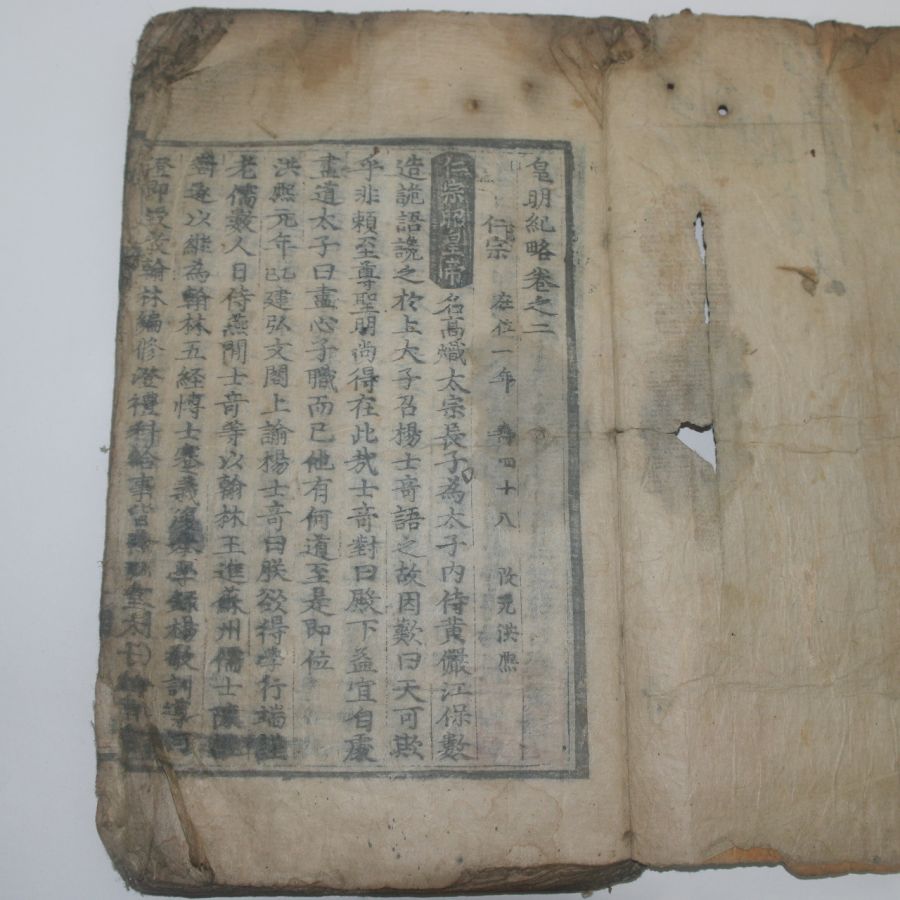 皇明紀略卷之二
仁宗 在位一年 壽四十八 改元洪熙
仁宗昭皇帝 名高熾太宗長子為太子內侍黃儼江保數
造詭語讒之於上大子召楊士竒語之故因歎曰天可欺
乎非賴至尊聖明尚得在此㢤士竒對曰殿下益宜自處
盡道太子曰盡心子職而已他有何道至是即位
洪熙元年乙巳建弘文閣上諭楊士竒曰朕欲得學行端謹
老儒數人日侍燕閒士竒等以翰林王進蘇州儒士陳
遂以繼為翰林五経愽士蹇義 學錄楊敬訓導
澄即 翰林編修澄禮科給事